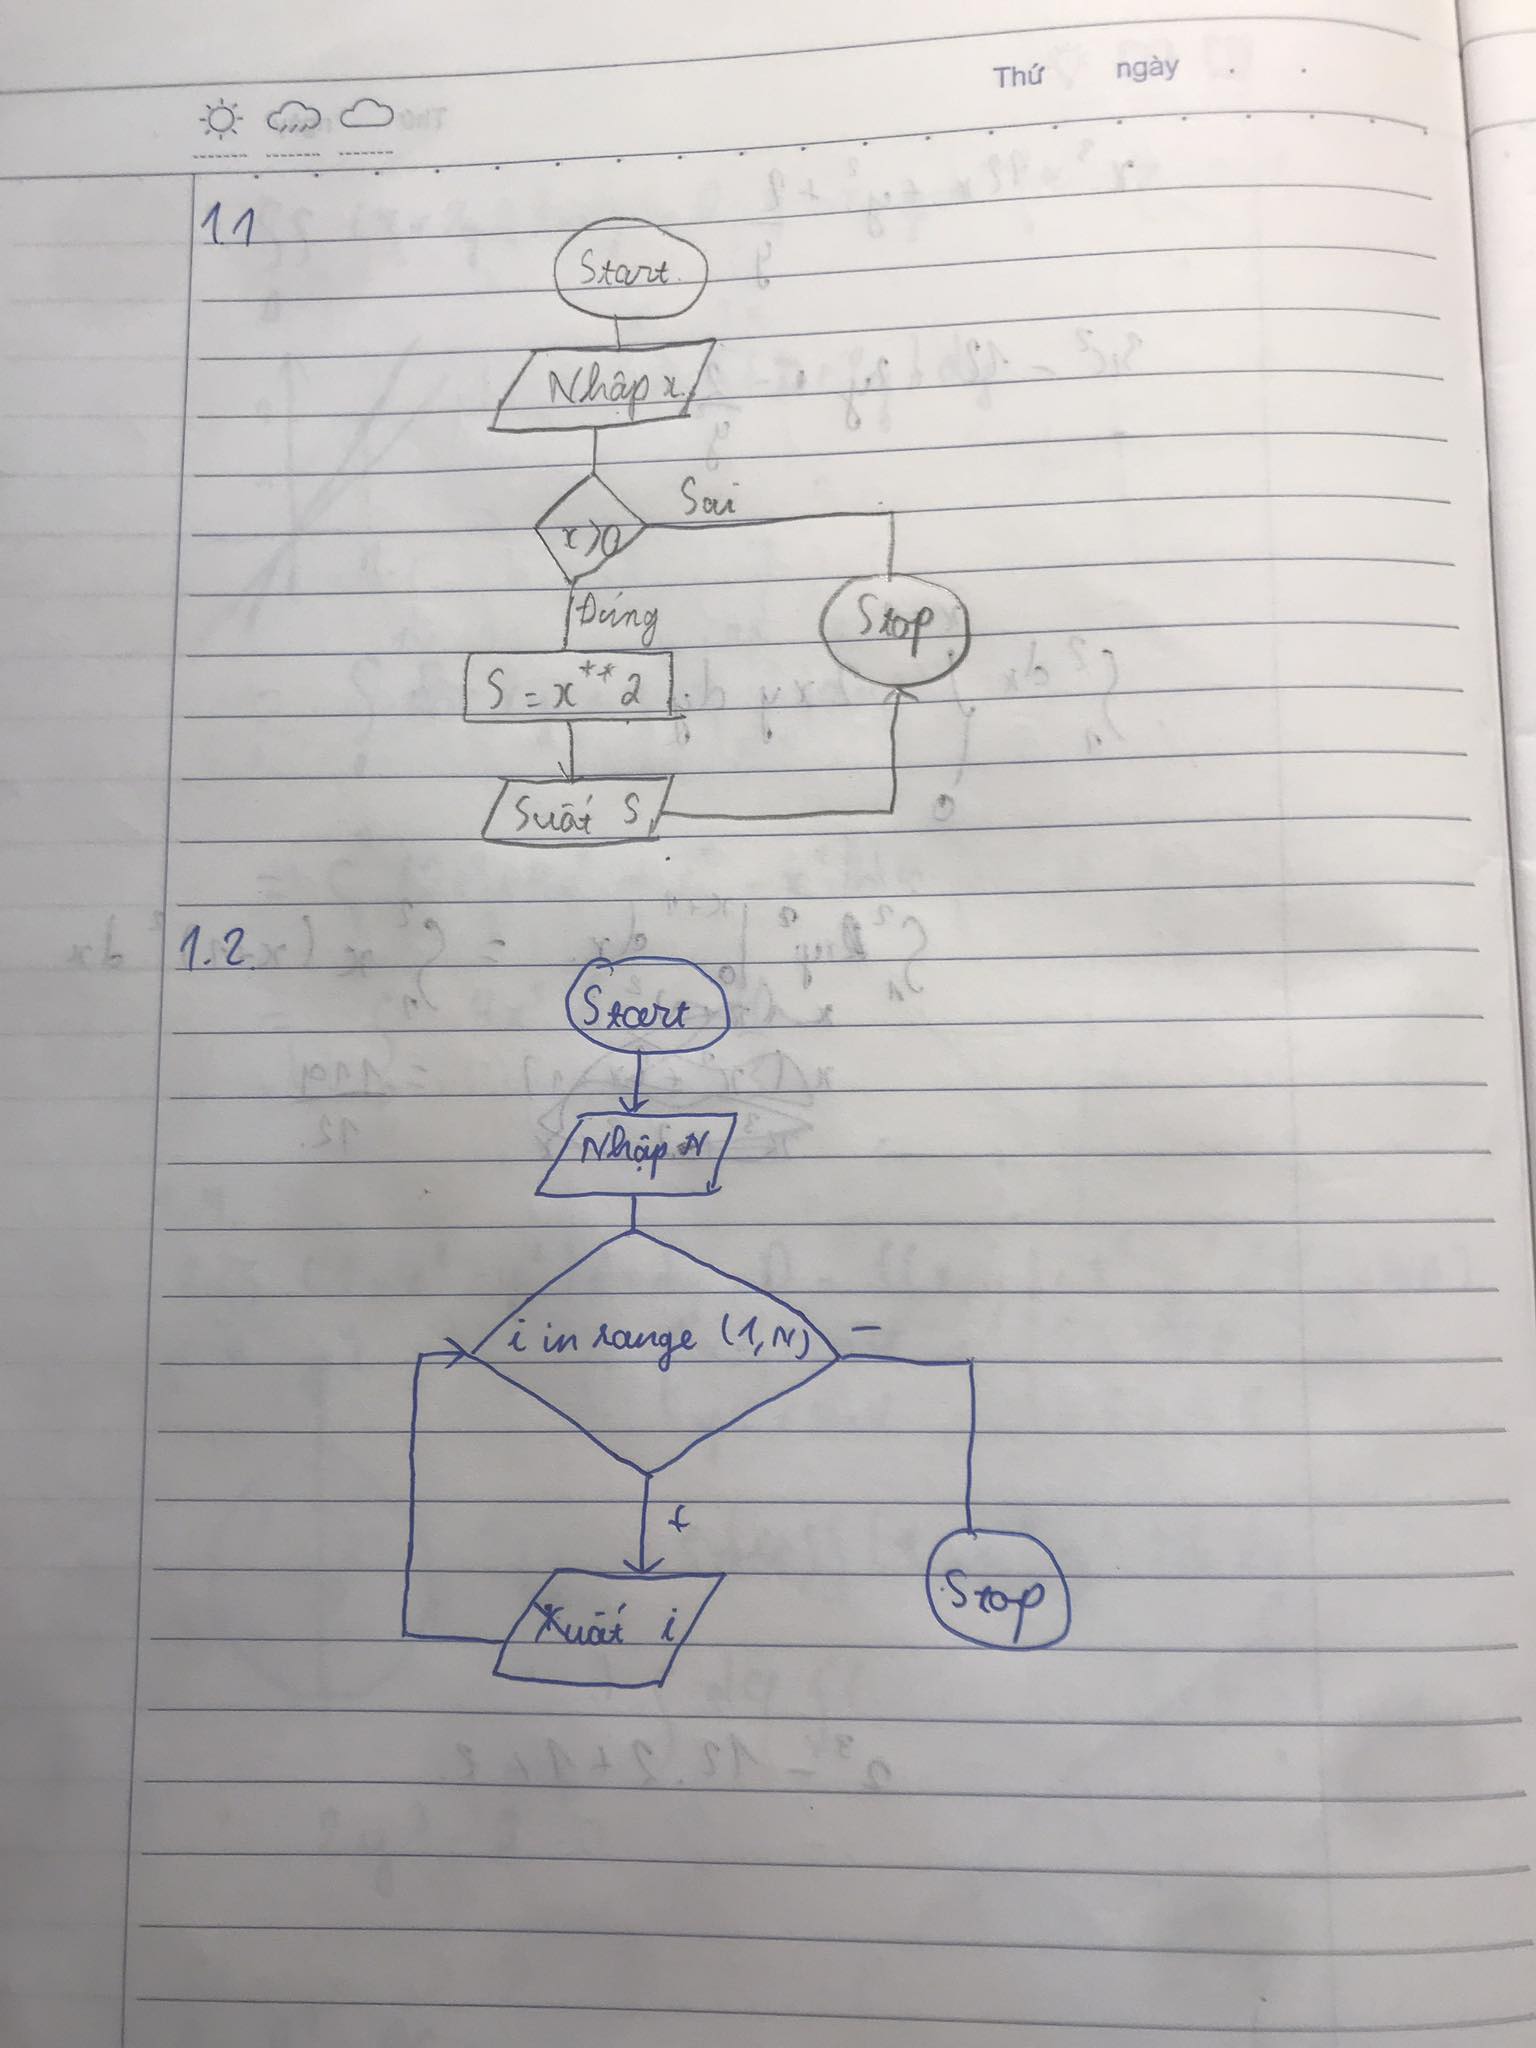 Thứ ngày
1.1
Start
Nhập x
x>0
Sai
Đúng
Stop
S = x**2
Suất S
1.2
Start
Nhập N
i in range (1, N)
-
+
Xuất i
Stop